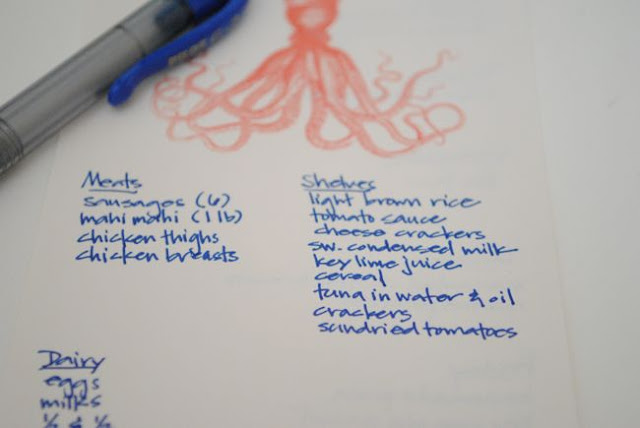 Meats
sausages (6)
mahi mahi (1 lb)
chicken thighs
chicken breasts
Shelves
light brown rice
tomato sauce
cheese crackers
sw. condensed milk
key lime juice
cereal
tuna in water & oil
crackers
sundried tomatoes
Dairy
eggs
milks
½ & ½